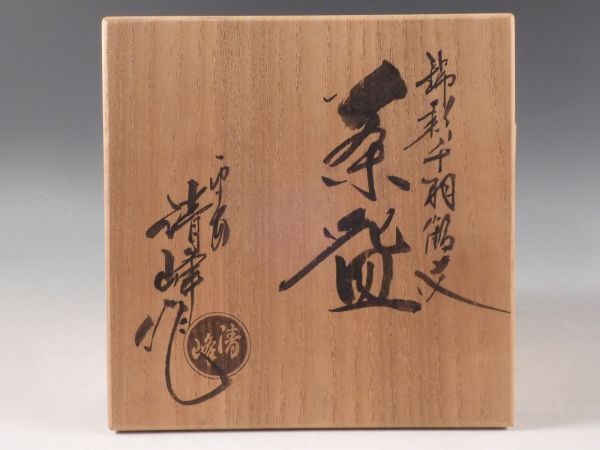 錦彩千羽鶴文
茶盌
清峰作
清峰